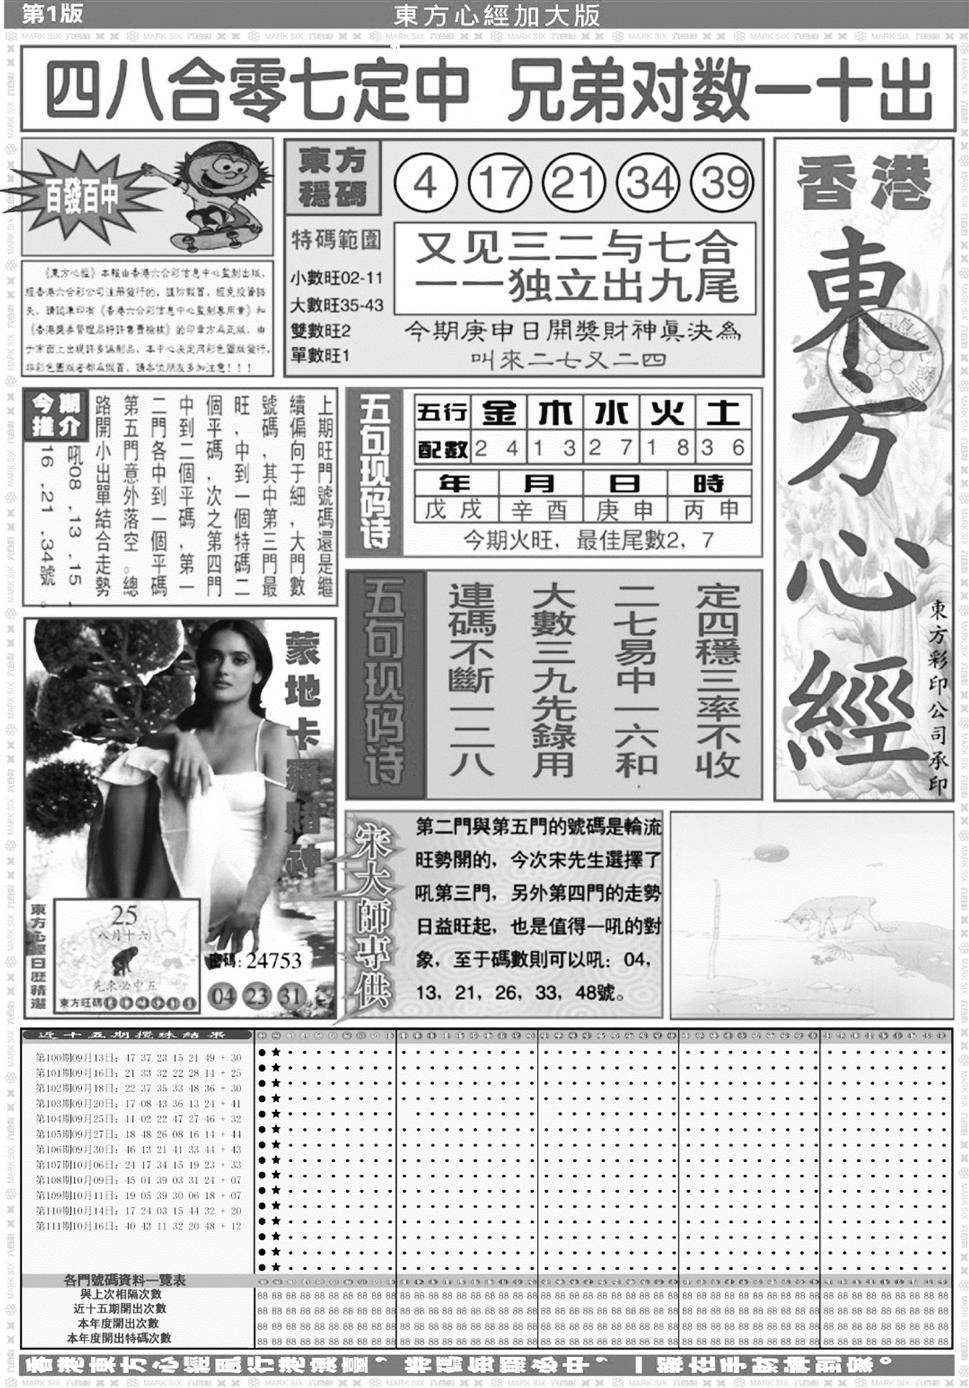 第1版
東方心經加大版
四八合零七定中 兄弟对数一十出
百發百中
《東方心經》本報由香港六合彩信息中心監制出版，
經香港六合彩公司注册發行的，謹防假冒，經免投資損
失，請認準印有《香港六合彩信息中心監制專用章》和
《香港獎券管理局特許售賣檢核》的印章方爲正版，由
于市面上出現許多僞制品，本中心决定用彩色圖版發行，
非彩色圖版者都爲假冒，請各位朋友多加注意！！！
東方
穩碼
4 17 21 34 39
特碼範圍
小數旺02-11
大數旺35-43
雙數旺2
單數旺1
又见三二与七合
一一独立出九尾
今期庚申日開獎財神眞決為
叫來二七又二四
香港
東方心經
東方彩印公司承印
今期
推介
上期旺門號碼還是繼
續偏向于細，大門數
號碼，其中第三門最
旺，中到一個特碼二
個平碼，次之第四門
中到二個平碼，第一
二門各中到一個平碼
第五門意外落空。總
路開小出單結合走勢
吼08，13，15，
16，21，34號。
五句现码诗
五行 金 木 水 火 土
配數 2 4 1 3 2 7 1 8 3 6
年 月 日 時
戊戌 辛酉 庚申 丙申
今期火旺，最佳尾數2，7
五句现码诗
定四穩三率不收
二七易中一六和
大數三九先錄用
連碼不斷一二八
蒙地卡羅賭神
東方心經日歷精選
25
八月十六
先來必中五
東方旺碼
密碼：24753
04 23 31
宋大師專供
第二門與第五門的號碼是輪流
旺勢開的，今次宋先生選擇了
吼第三門，另外第四門的走勢
日益旺起，也是值得一吼的對
象，至于碼數則可以吼：04，
13，21，26，33，48號。
近十五期攪珠結果
第100期09月13日：47 37 23 15 21 49 + 30
第101期09月16日：21 33 32 22 28 14 + 25
第102期09月18日：22 37 35 33 48 36 + 30
第103期09月20日：17 08 43 36 13 24 + 41
第104期09月25日：11 02 22 47 27 46 + 32
第105期09月27日：18 48 26 08 16 14 + 44
第106期09月30日：46 13 21 41 33 44 + 43
第107期10月06日：24 17 34 15 19 23 + 33
第108期10月09日：45 01 39 03 31 24 + 07
第109期10月11日：19 05 39 30 06 18 + 07
第110期10月14日：17 24 03 15 44 32 + 20
第111期10月16日：40 43 11 32 20 48 + 12
各門號碼資料一覽表
與上次相隔次數
近十五期開出次數
本年度開出次數
本年度開出特碼次數
香港東方心經風行港澳臺，特碼每期必中，一版在手財神到家。